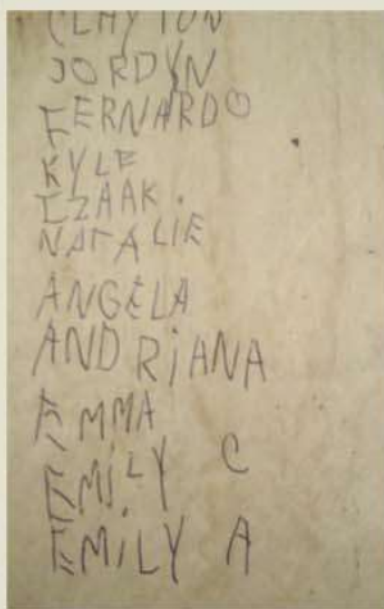 CLAYTON
JORDYN
FERNARDO
KYLE
IZAAK.
NATALIE
ANGELA
ANDRiANA
EMMA
EMiLY C
EMiLY A